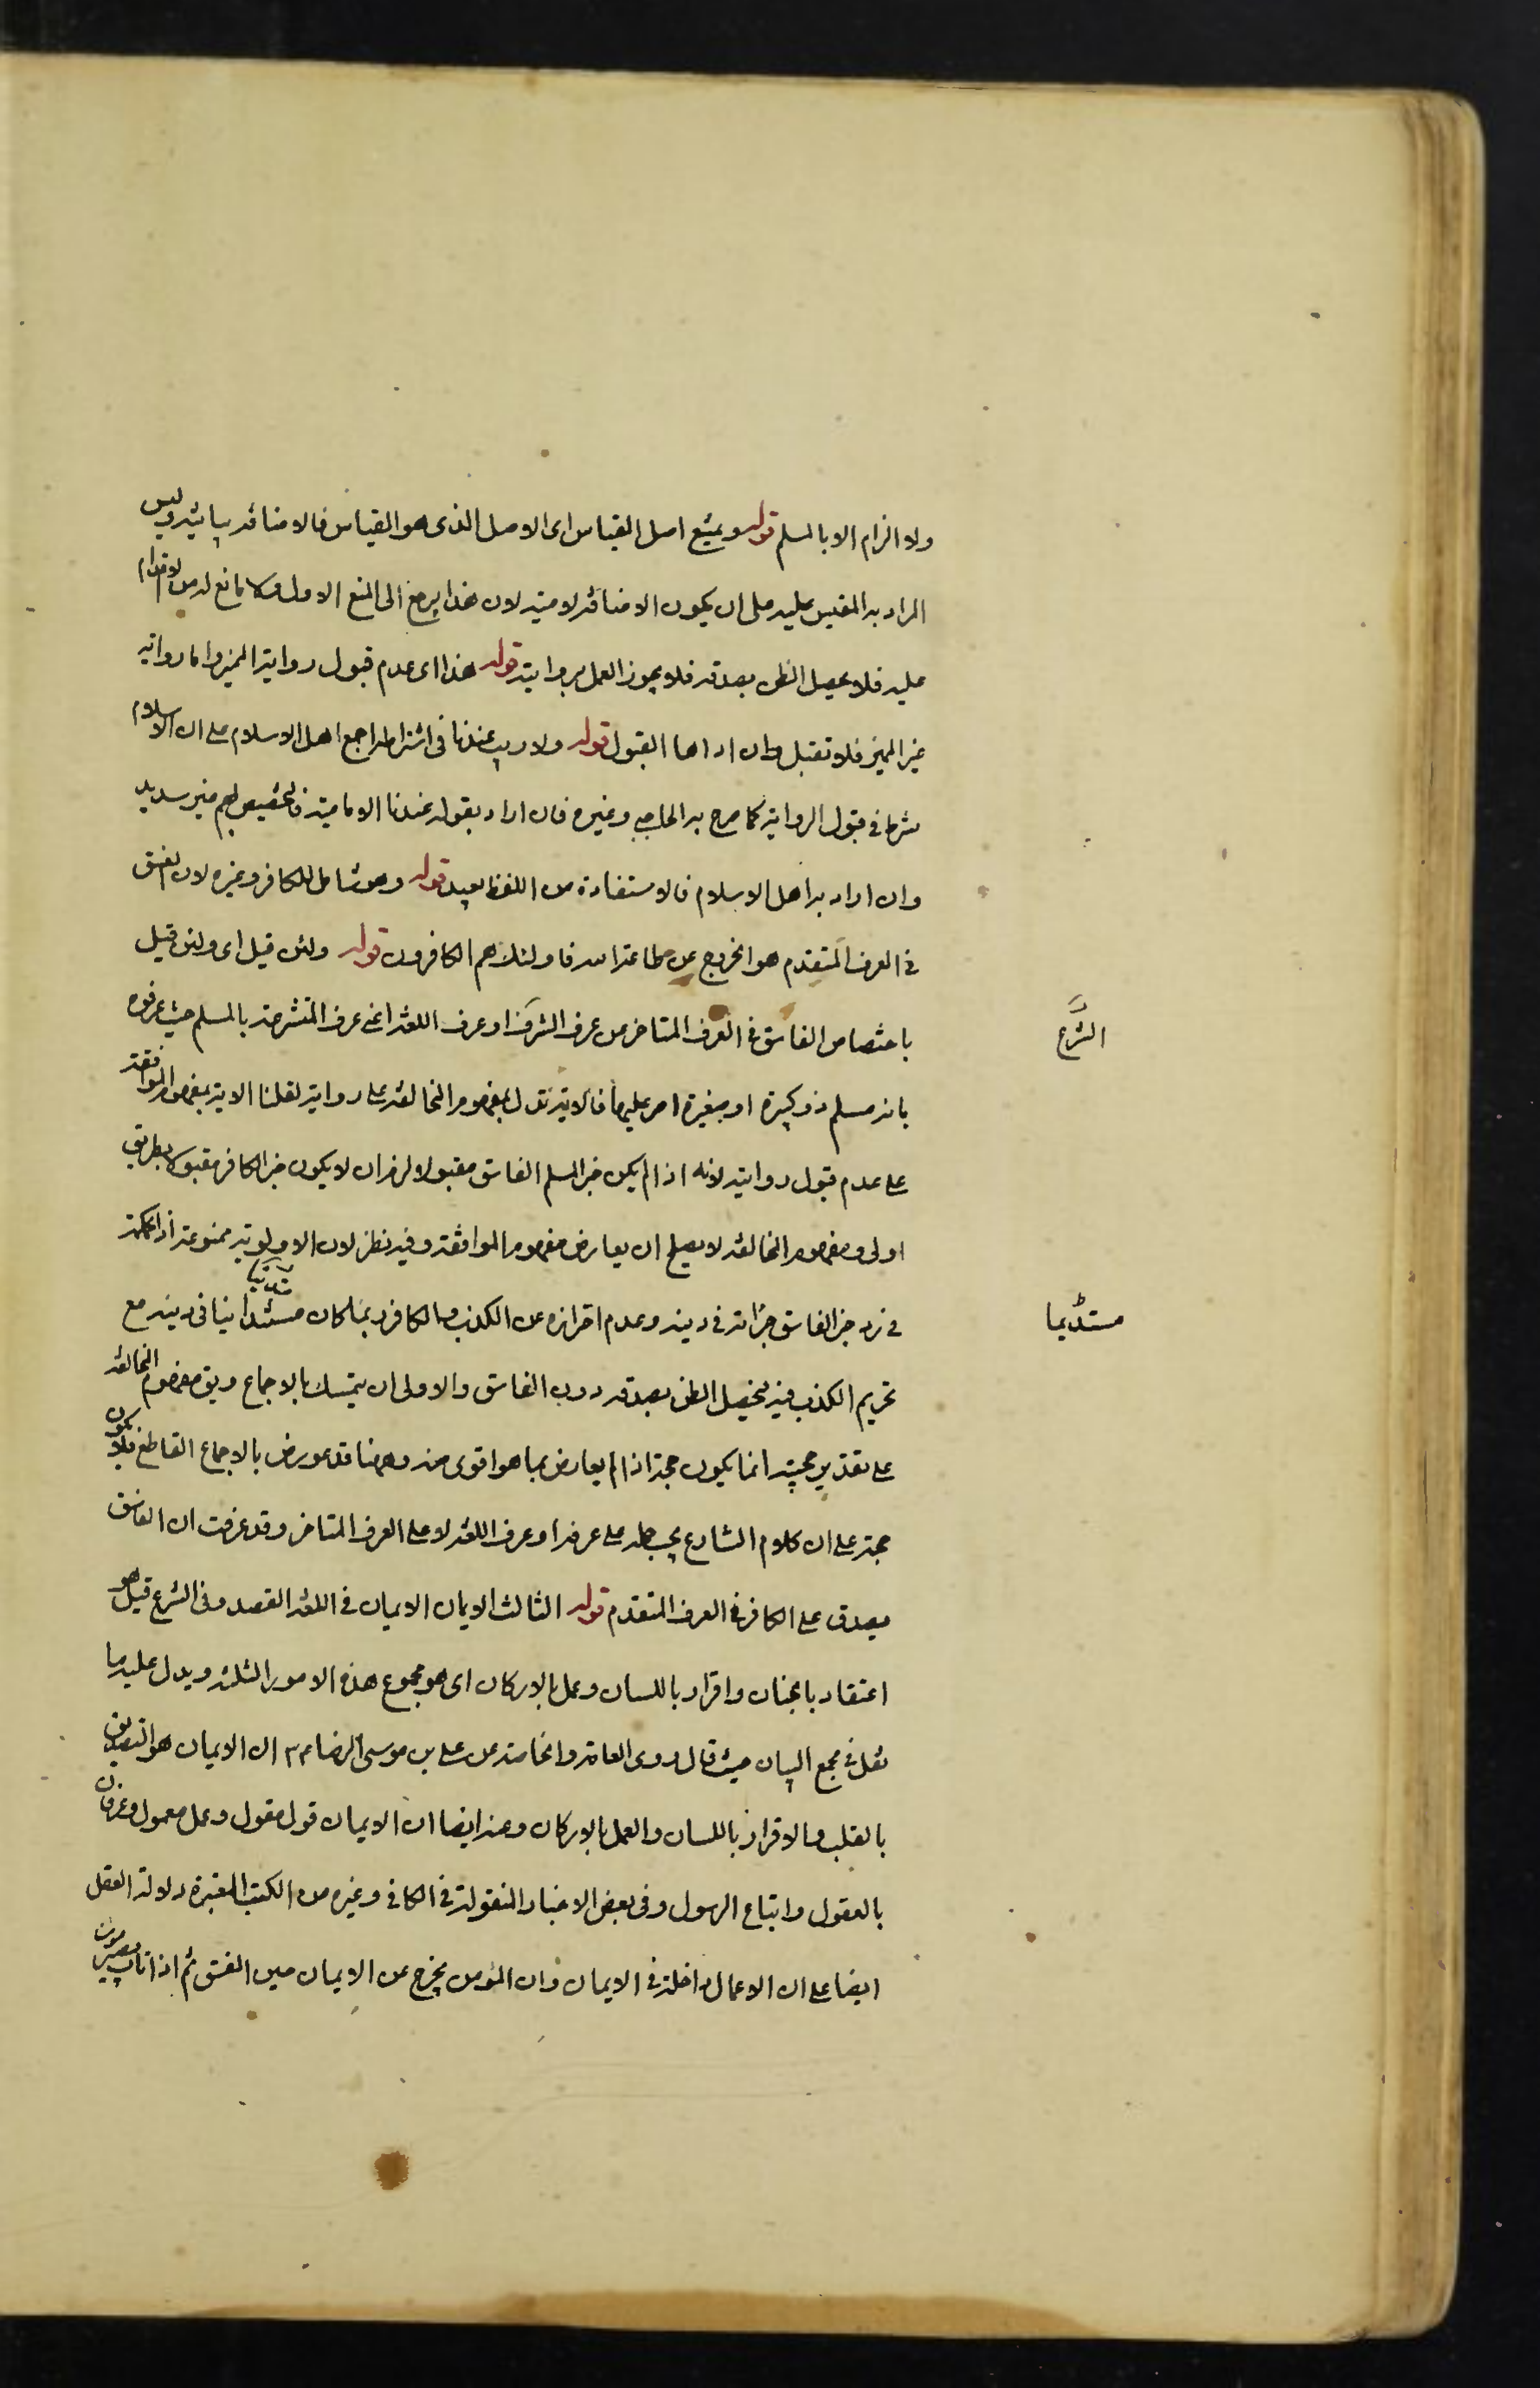 ولا الزام الا بالمسلم قوله ويمنع اصل القياس اى الاصل الذى هو القياس فالاضافة بيانية وليس
المراد به المقيس عليه على ان يكون الاضافة لامية لان هذا يرجع الى المنع الاول ولا مانع له من الاقدام
عليه فلا يحصل الظن بصدقه فلا يجوز العمل بروايته قوله هذا اى عدم قبول رواية المميز واما رواية
غير المميز فلا تقبل وان اداها القبول قوله ولا ريب عندنا فى اشتراطه اجمع اهل الاسلام على ان الاسلام
شرط فى قبول الرواية كما صرح به الحاجبى وغيره فان اراد بقوله عندنا الامامية فالتخصيص بهم غير سديد
وان اراد به اهل الاسلام فالاستفادة من اللفظ بعيد قوله وهو شامل للكافر وغيره لان الفسق
فى العرف المتقدم هو الخروج عن طاعة الله فاولئك هم الكافرون قوله ولئن قيل اى ولئن قيل
باختصاص الفاسق فى العرف المتاخر من عرف الشرف او عرف اللغة اعنى عرف المتشرعة بالمسلم حيث عرفوه
الشرع
بانه مسلم ذو كبيرة او صغيرة اصر عليها فالاية تدل بمفهوم المخالفة على رواية لقلنا الاية بمفهوم الموافقة
على عدم قبول روايته لانه اذا لم يكن خبر المسلم الفاسق مقبولا ولزم ان لا يكون خبر الكافر مقبولا بطريق
اولى ومفهوم المخالفة لا يصلح ان يعارض مفهوم الموافقة وفيه نظر لان الاولوية ممنوعة اذ الحكمة
فى رد خبر الفاسق جرأته فى دينه وعدم احترازه عن الكذب والكافر ربما كان مستدينا فى دينه مع
مستدينا
تحريم الكذب فيه فيحصل الظن بصدقه دون الفاسق والاولى ان يتمسك بالاجماع ويق مفهوم المخالفة
على تقدير حجيته انما يكون حجة اذا لم يعارض بما هو اقوى منه وههنا قد عورض بالاجماع القاطع فلا يكون
حجة على ان كلام الشارع يجب حمله على عرفه او عرف اللغة لا على العرف المتاخر وقد عرفت ان الفاسق
يصدق على الكافر فى العرف المتقدم قوله الثالث الايمان الايمان فى اللغة القصد وفى الشرع قيل هو
اعتقاد بالجنان واقرار باللسان وعمل بالاركان اى هو مجموع هذه الامور الثلثة ويدل عليه ما
نقل فى مجمع البيان حيث قال روى العامة والخاصة عن على بن موسى الرضا ان الايمان هو التصديق
بالقلب والاقرار باللسان والعمل بالاركان وعنه ايضا ان الايمان قول مقول وعمل معمول وعرفان
بالعقول واتباع الرسول وفى بعض الاخبار المنقولة فى الكافى وغيره من الكتب المعتبرة دلالة العقل
ايضا على ان الاعمال داخلة فى الايمان وان المؤمن يخرج عن الايمان حين الفسق ثم اذا تاب يصير مؤمنا